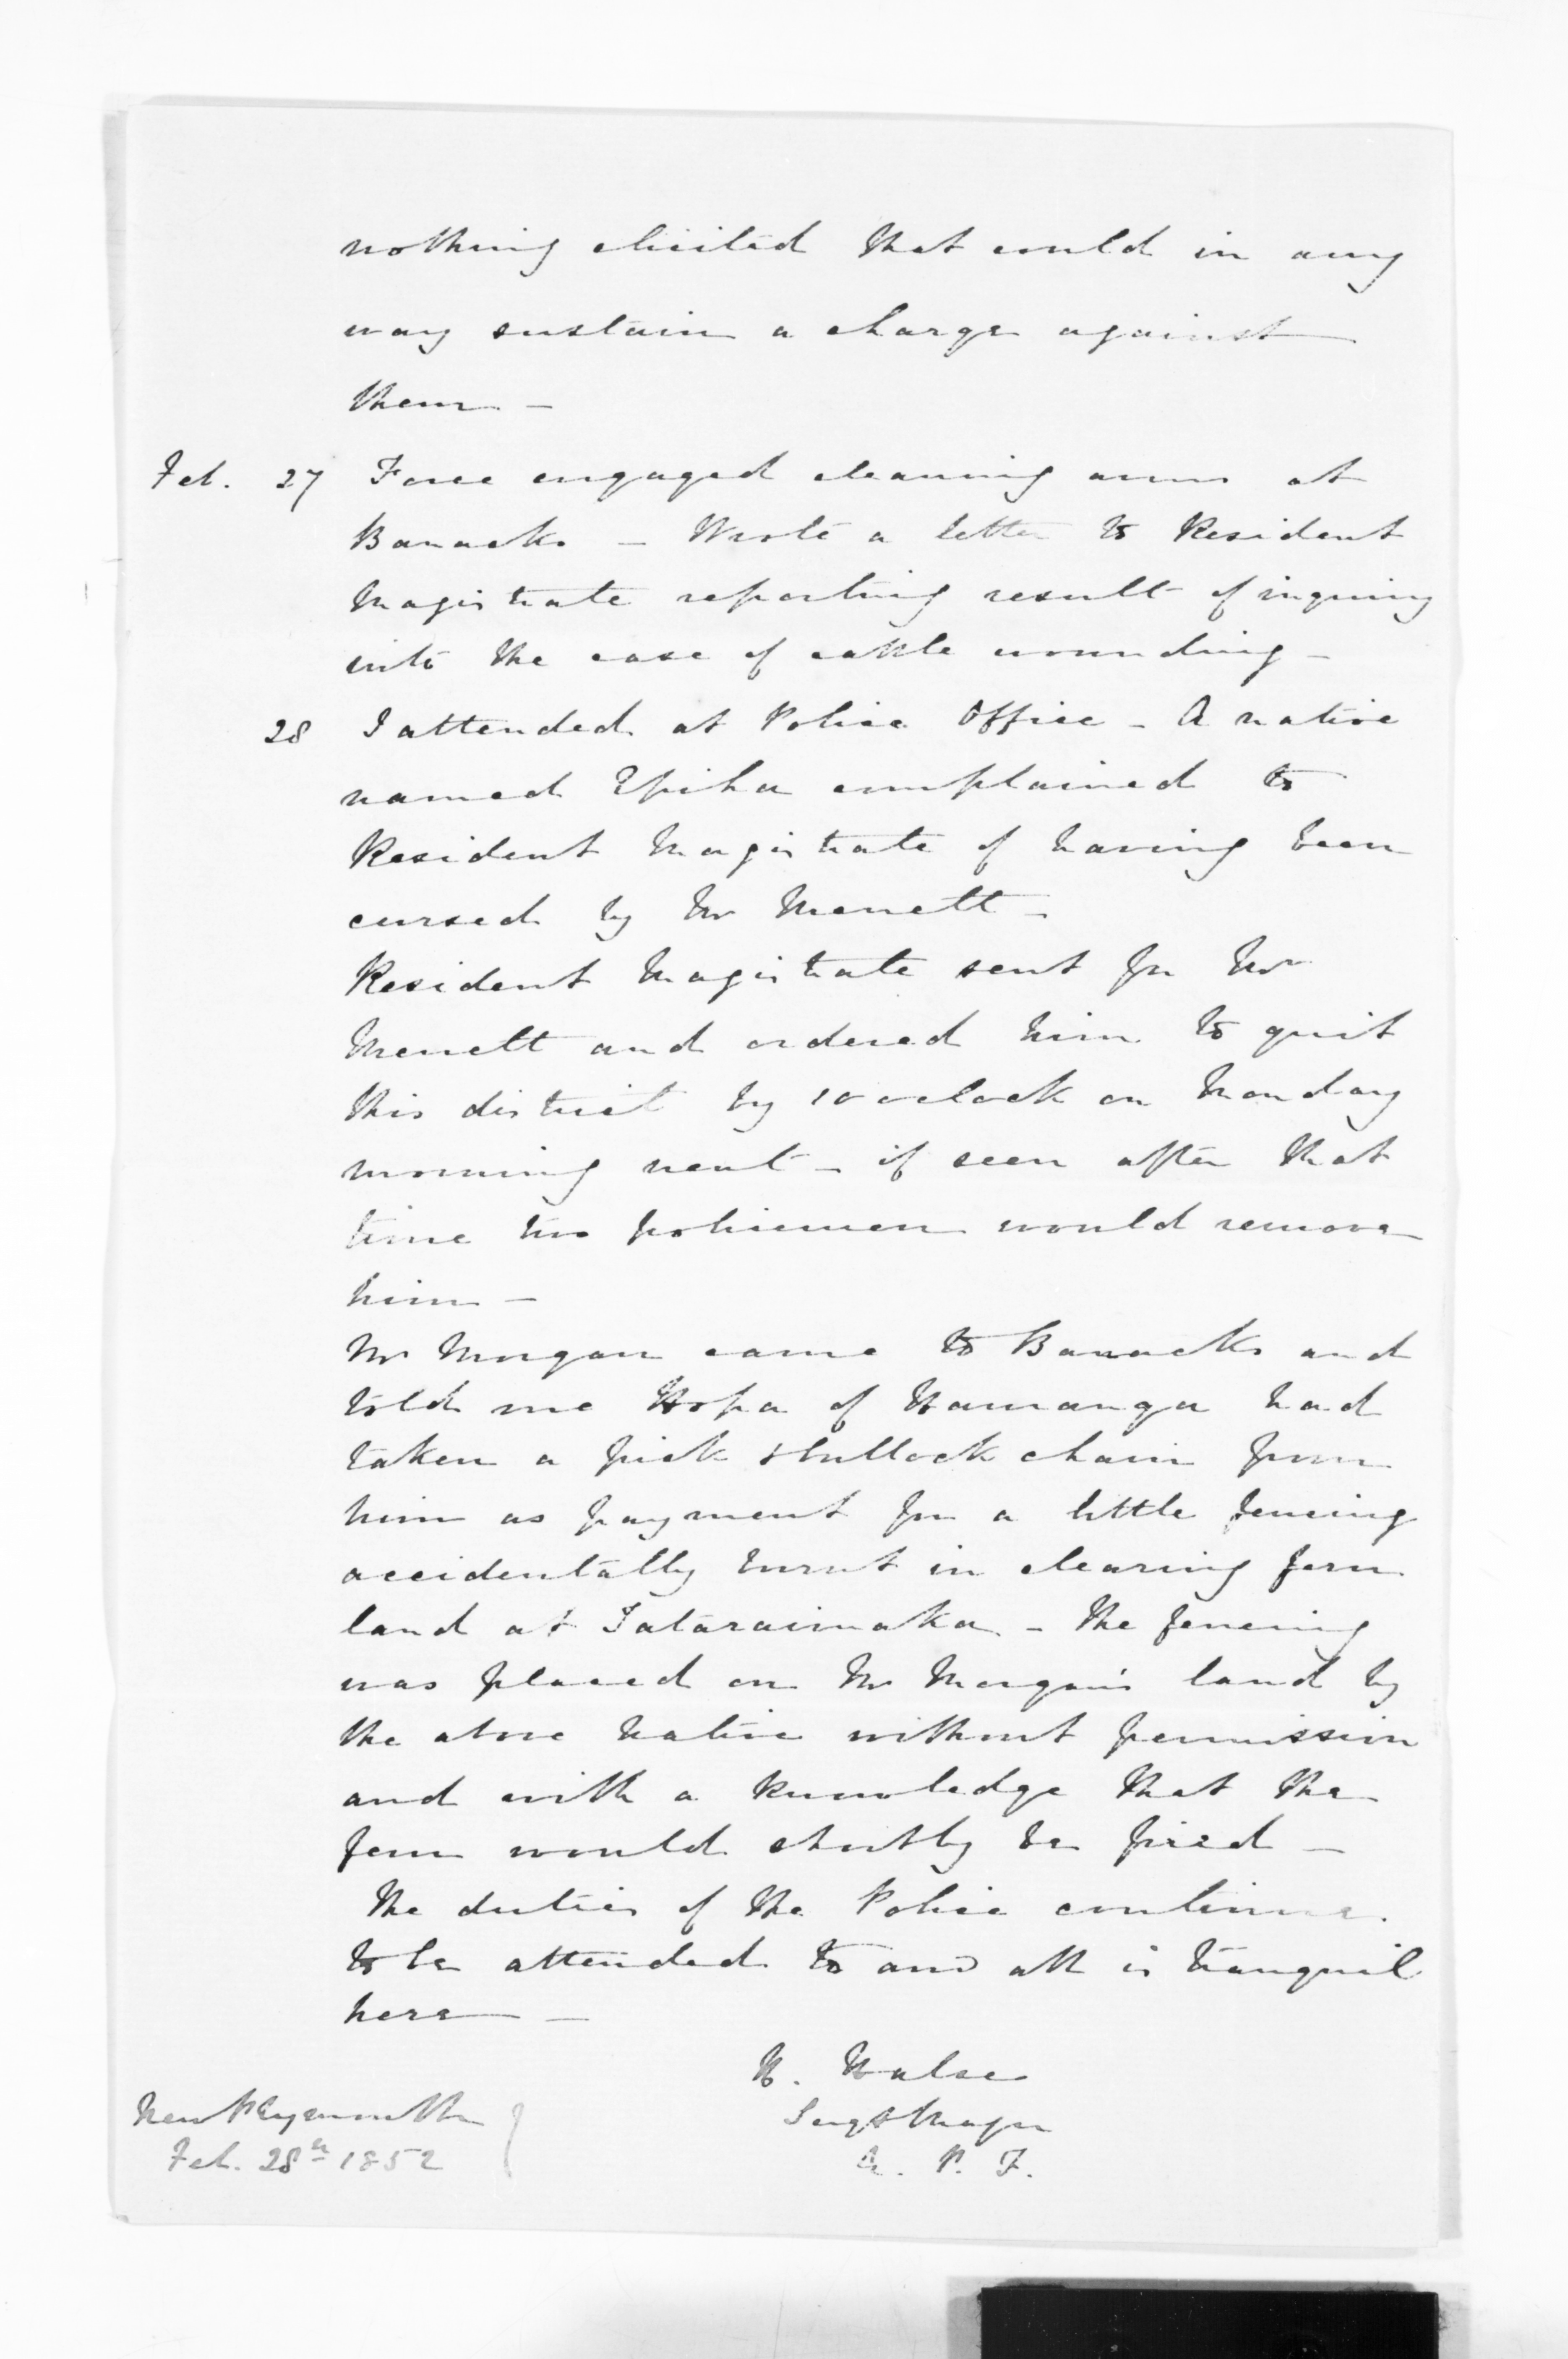 nothing elicited that could in any
way sustain a charge against
them -
Feb. 27 Force engaged cleaning arms at
Barracks - Wrote a letter to Resident
Magistrate reporting result of inquiry
into the case of cattle wounding -
28 I attended at Police Office - A native
named Epiha complained to
Resident Magistrate of having been
cursed by Mr Merrett -
Resident Magistrate sent for Mr
Merrett and ordered him to quit
this district by 10 oclock on Monday
morning next - if seen after that
time two policemen would remove
him -
Mr Morgan came to Barracks and
told me Hopa of Hauranga had
taken a pick & bullock chain from
him as payment for a little fencing
accidentally burnt in clearing fern
land at Tataraimaka - the fencing
was placed on Mr Morgan's land by
the above Native without permission
and with a knowledge that the
fern would shortly be fired -
The duties of the Police continue
to be attended to and all is tranquil
here -
H. Halse
Sergt Major
A. P. F.
New Plymouth
Feb. 28th 1852